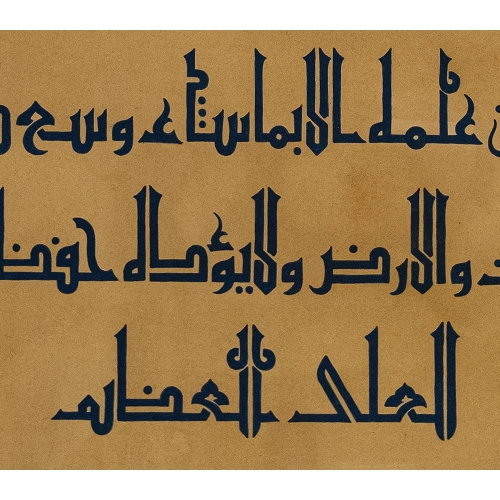 علمه الا بما شاء وسع
والارض ولا يؤده حفظ
العلى العظيم